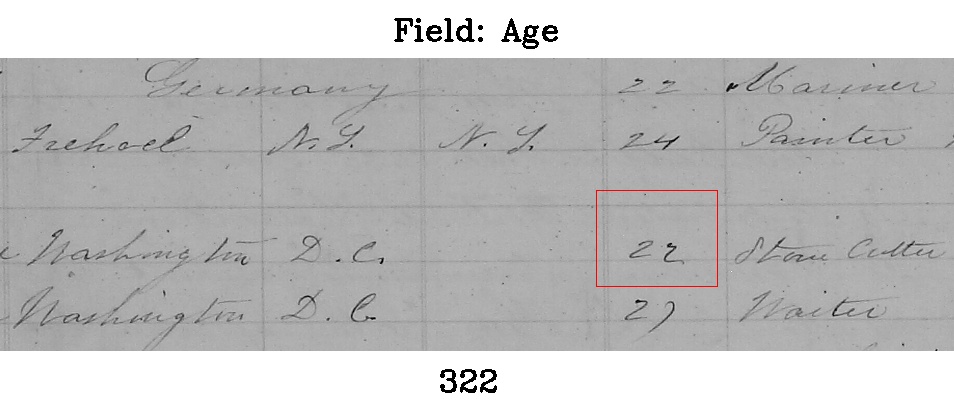 Field: Age
Germany 22 Mariner
Freehoel N.Y. N.Y. 24 Painter
Washington D.C. 22 Stone Cutter
Washington D.C. 27 Waiter
322